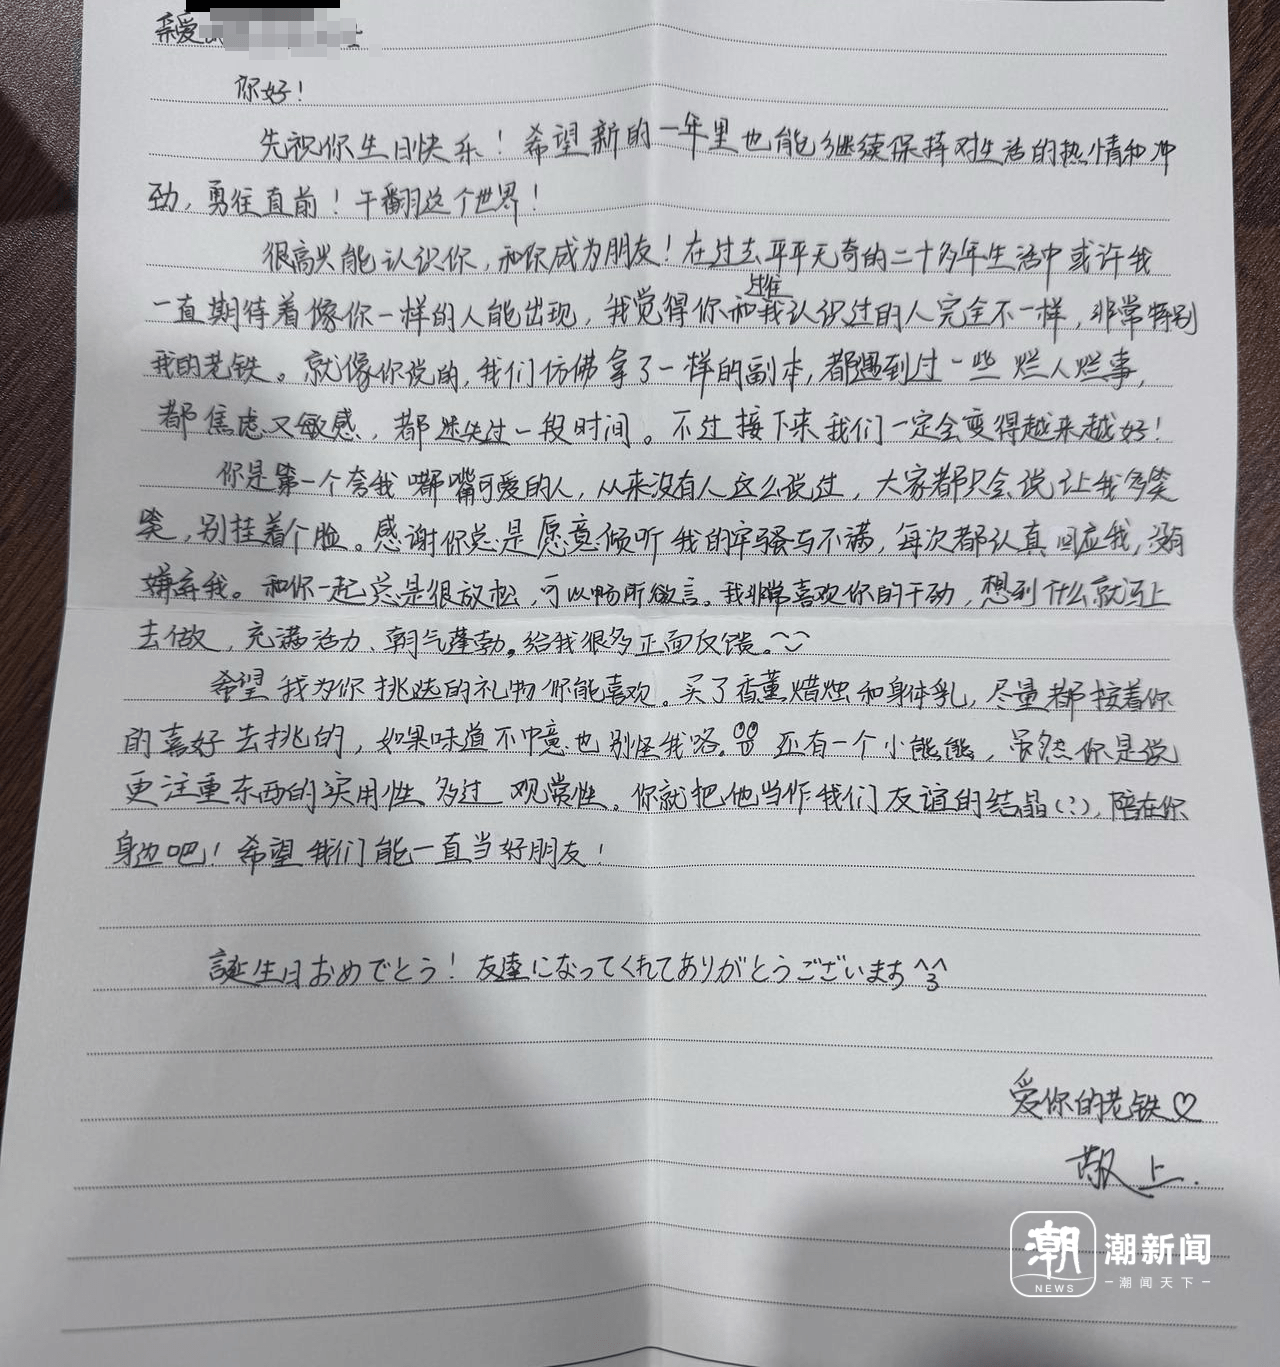 亲爱
你好！
先祝你生日快乐！希望新的一年里也能继续保持对生活的热情和冲
劲，勇往直前！干翻这个世界！
很高兴能认识你，和你成为朋友！在过去平平无奇的二十多年生活中或许我
一直期待着像你一样的人能出现，我觉得你和我过往认识过的人完全不一样，非常特别
我的老铁。就像你说的，我们仿佛拿了一样的副本，都遇到过一些烂人烂事，
都焦虑又敏感，都迷失过一段时间。不过接下来我们一定会变得越来越好！
你是第一个夸我嘟嘴可爱的人，从来没有人这么说过，大家都只会说让我多笑
笑，别挂着个脸。感谢你总是愿意倾听我的牢骚与不满，每次都认真回应我，没有
嫌弃我。和你一起总是很放松，可以畅所欲言。我非常喜欢你的干劲，想到什么就马上
去做，充满活力、朝气蓬勃。给我很多正面反馈。
希望我为你挑选的礼物你能喜欢。买了香薰蜡烛和身体乳，尽量都按着你
的喜好去挑的，如果味道不中意也别怪我咯。还有一个小熊熊，虽然你是说
更注重东西的实用性多过观赏性。你就把他当作我们友谊的结晶(？)，陪在你
身边吧！希望我们能一直当好朋友！
誕生日おめでとう！友達になってくれてありがとうございます^3^
爱你的老铁♡
敬上.
潮 潮新闻
NEWS 潮闻天下